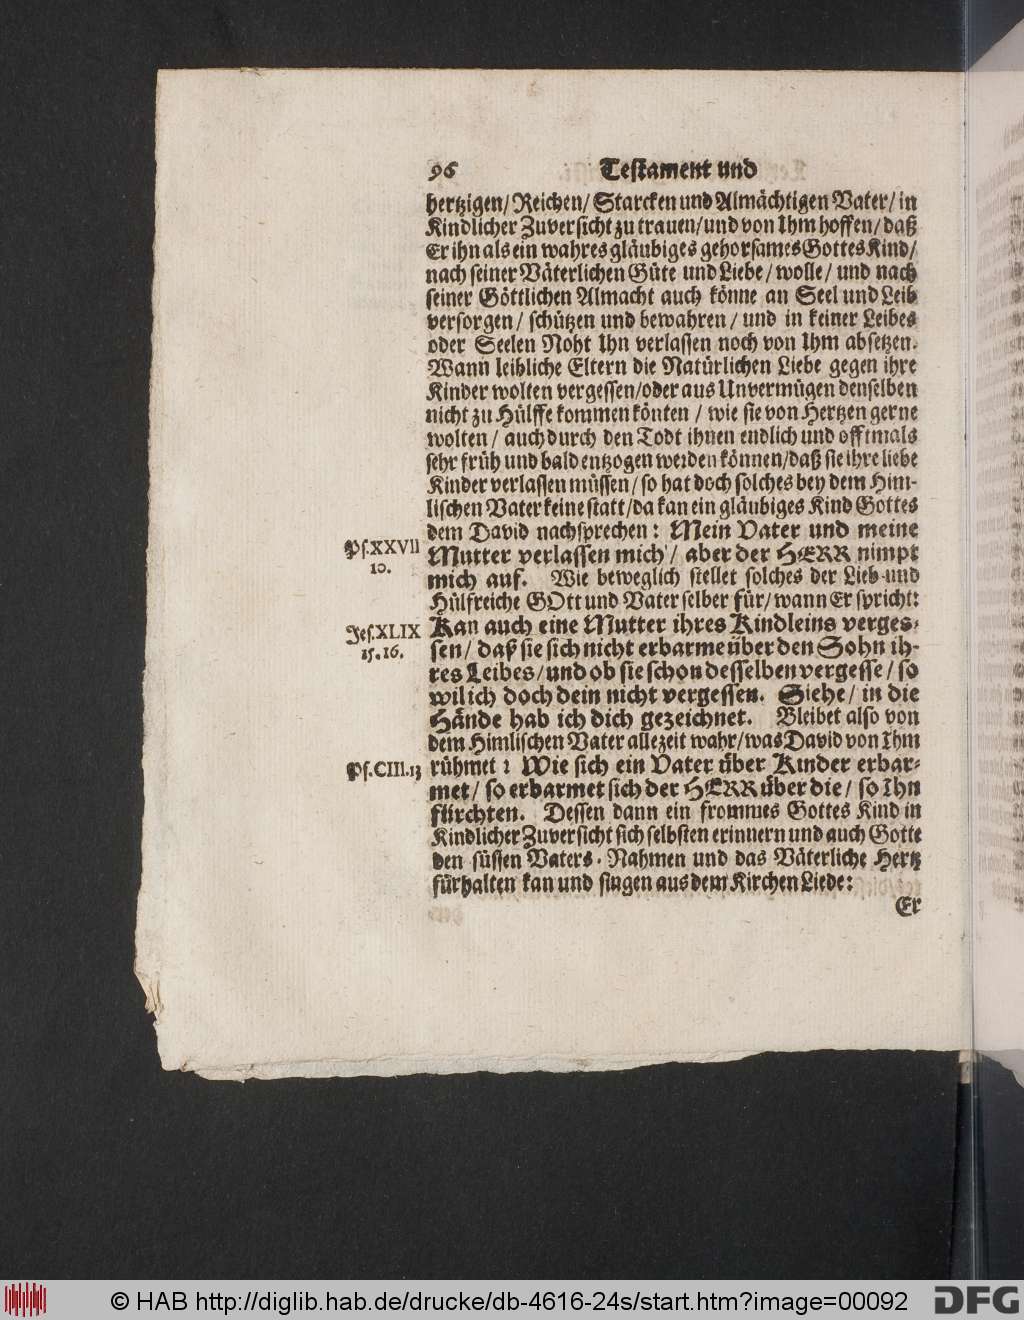 96 Testament und
hertzigen/ Reichen/ Starcken und Almächtigen Vater/ in
Kindlicher Zuversicht zu trauen/ und von Ihm hoffen/ daß
Er ihn als ein wahres gläubiges gehorsames Gottes Kind/
nach seiner Väterlichen Güte und Liebe/ wolle/ und nach
seiner Göttlichen Almacht auch könne an Seel und Leib
versorgen/ schützen und bewahren/ und in keiner Leibes
oder Seelen Noht Ihn verlassen noch von Ihm absetzen.
Wann leibliche Eltern die Natürlichen Liebe gegen ihre
Kinder wolten vergessen/ oder aus Unvermügen denselben
nicht zu Hülffe kommen könten/ wie sie von Hertzen gerne
wolten/ auch durch den Todt ihnen endlich und offtmals
sehr früh und bald entzogen werden können/ daß sie ihre liebe
Kinder verlassen müssen/ so hat doch solches bey dem Him-
lischen Vater keine statt/ da kan ein gläubiges Kind Gottes
dem David nachsprechen: Mein Vater und meine
Ps. XXVII
10.
Mutter verlassen mich/ aber der HERR nimpt
mich auf. Wie beweglich stellet solches der Lieb- und
Hülfreiche GOtt und Vater selber für/ wann Er spricht:
Jes. XLIX
15. 16.
Kan auch eine Mutter ihres Kindleins verges-
sen/ daß sie sich nicht erbarme über den Sohn ih-
res Leibes/ und ob sie schon desselben vergesse/ so
wil ich doch dein nicht vergessen. Siehe/ in die
Hände hab ich dich gezeichnet. Bleibet also von
dem Himlischen Vater allezeit wahr/ was David von Ihm
Ps. CIII. 13
rühmet: Wie sich ein Vater über Kinder erbar-
met/ so erbarmet sich der HERR über die/ so Ihn
fürchten. Dessen dann ein frommes Gottes Kind in
Kindlicher Zuversicht sich selbsten erinnern und auch Gotte
den süssen Vaters-Nahmen und das Väterliche Hertz
fürhalten kan und singen aus dem Kirchen Liede:
Er
© HAB http://diglib.hab.de/drucke/db-4616-24s/start.htm?image=00092
DFG